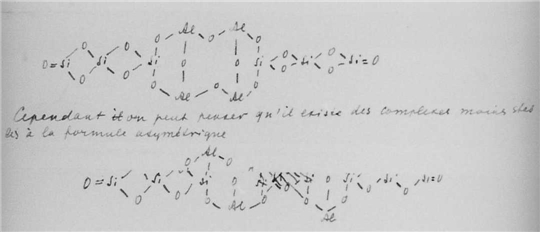 Al Al
O O O O O O O O
O=Si Si Si O O Si Si Si=O
O O O O O O O O
Al Al
Cependant on peut penser qu'il existe des complexes moins sta
bles à la formule asymétrique
Al
O O O
O=Si Si Si O Si Si O Si Si Si=O
O O O Al O O O O
Al